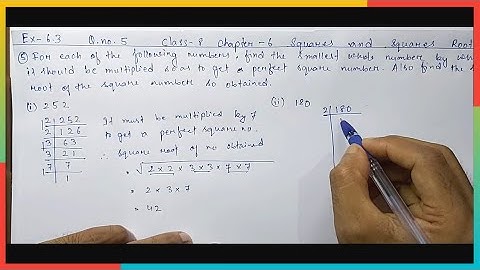 Ex-6.3 Q.no.5 Class-8 Chapter-6 Squares and Squares Root
⑤ For each of the following numbers, find the smallest whole number by
it should be multiplied so as to get a perfect square number. Also find the
root of the square number so obtained.
(i) 252 (ii) 180
2 | 252
2 | 126
3 | 63
3 | 21
7 | 7
1
It must be multiplied by 7
to get a perfect square no.
∴ Square root of no obtained
= √2×2×3×3×7×7
= 2×3×7
= 42
2 | 180